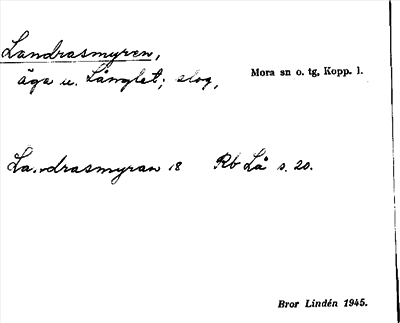 Landrasmyren,
äga u. Långlet; slog,
Mora sn o. tg, Kopp. l.
Landrasmyran 18 Rb Lå s. 20.
Bror Lindén 1945.